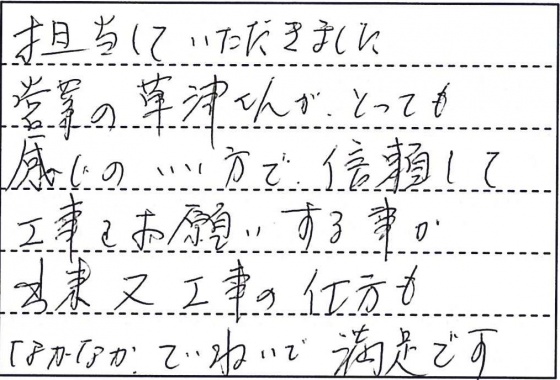 担当していただきました
営業の草津さんが、とっても
感じのいい方で、信頼して
工事をお願いする事が
出来又工事の仕方も
なかなか、ていねいで満足です